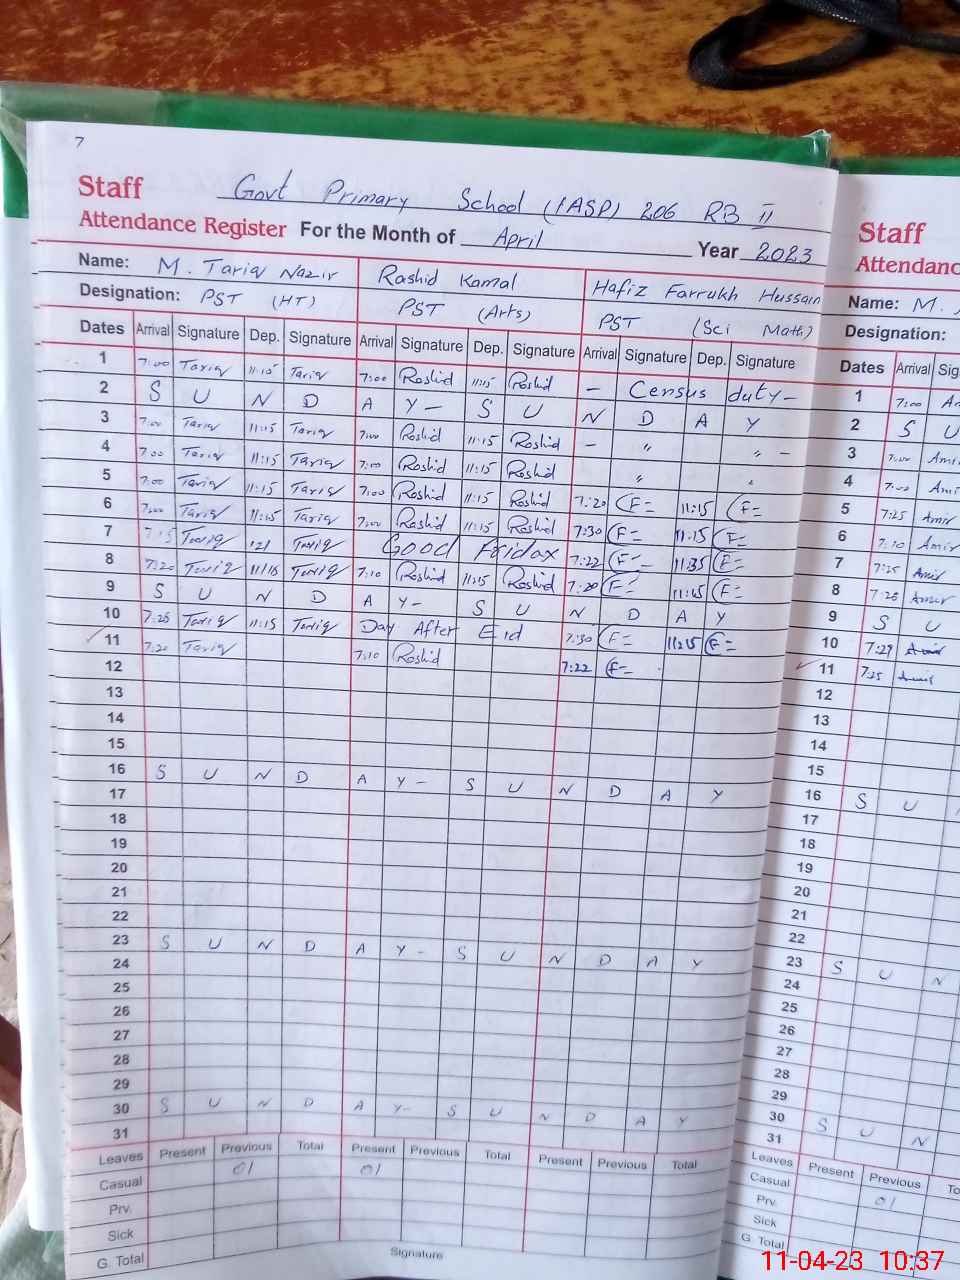 7
Staff Govt Primary School (IASP) 206 RB II
Attendance Register For the Month of April Year 2023
Name: M. Tariq Nazir Rashid Kamal Hafiz Farrukh Hussain
Designation: PST (HT) PST (Arts) PST (Sci Math)
Dates Arrival Signature Dep. Signature Arrival Signature Dep. Signature Arrival Signature Dep. Signature
1 7:00 Tariq 11:15 Tariq 7:00 Rashid 11:15 Rashid - Census duty -
2 S U N D A Y - S U N D A Y
3 7:00 Tariq 11:15 Tariq 7:00 Rashid 11:15 Rashid - " " -
4 7:00 Tariq 11:15 Tariq 7:00 Rashid 11:15 Rashid "
5 7:00 Tariq 11:15 Tariq 7:00 Rashid 11:15 Rashid 7:20 F= 11:15 F=
6 7:00 Tariq 11:15 Tariq 7:00 Rashid 11:15 Rashid 7:30 F= 11:15 F=
7 Tariq Tariq Good Friday 7:22 F= 11:35 F=
8 7:20 Tariq 11:15 Tariq 7:10 Rashid 11:15 Rashid 7:20 F= 11:15 F=
9 S U N D A Y - S U N D A Y
10 7:25 Tariq 11:15 Tariq Day After Eid 7:30 F= 11:15 F=
11 7:20 Tariq 7:10 Rashid 7:22 F=
12
13
14
15
16 S U N D A Y - S U N D A Y
17
18
19
20
21
22
23 S U N D A Y - S U N D A Y
24
25
26
27
28
29
30 S U N D A Y - S U N D A Y
31
Leaves Present Previous Total Present Previous Total Present Previous Total
Casual 01 01
Prv.
Sick
G. Total
Signature
Staff
Attendanc
Name: M.
Designation:
Dates Arrival Sig
1 7:00
2 S U
3 7:00 Ami
4 7:00 Ami
5 7:25 Amir
6 7:10 Amir
7 7:25 Amir
8 7:25 Amir
9 S U
10 7:29 Amir
11 7:25 Amir
12
13
14
15
16 S U
17
18
19
20
21
22
23 S U N
24
25
26
27
28
29
30 S U N
31
Leaves Present Previous To
Casual 01
Prv.
Sick
G. Total
11-04-23 10:37